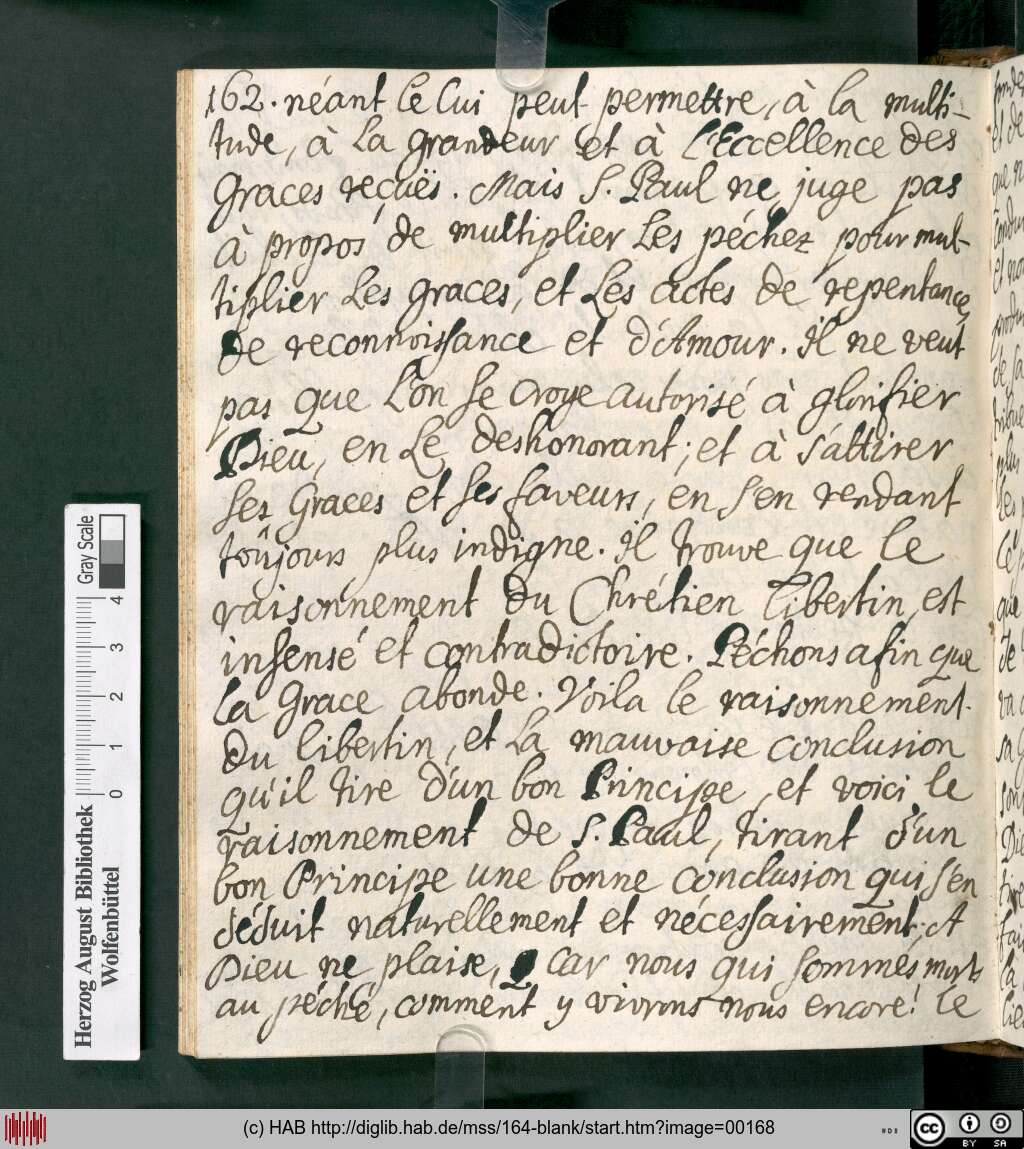 162. néant le lui peut permettre, à la multi-
tude, à la grandeur et à l'Eccellence des
Graces reçuës. Mais S. Paul ne juge pas
à propos de multiplier Les péchez pour mul-
tiplier Les graces, et Les actes de repentance,
de reconnoissance et d'Amour. Il ne veut
pas que L'on se croye autorisé à glorifier
Dieu, en Le deshonorant; et à s'attirer
ses Graces et ses faveurs, en s'en rendant
toûjours plus indigne. Il trouve que le
raisonnement du Chrétien Libertin, est
insensé et contradictoire. Péchons afin que
La Grace abonde. Voila le raisonnement.
du libertin, et La mauvaise conclusion
qu'il tire d'un bon Principe, et voici le
raisonnement de S. Paul, tirant d'un
bon Principe une bonne conclusion qui s'en
déduit naturellement et nécessairement; A
Dieu ne plaise, car nous qui sommes morts
au péché, comment y vivrons nous encore! le
Gray Scale
0 1 2 3 4
Herzog August Bibliothek
Wolfenbüttel
(c) HAB http://diglib.hab.de/mss/164-blank/start.htm?image=00168
cc BY SA